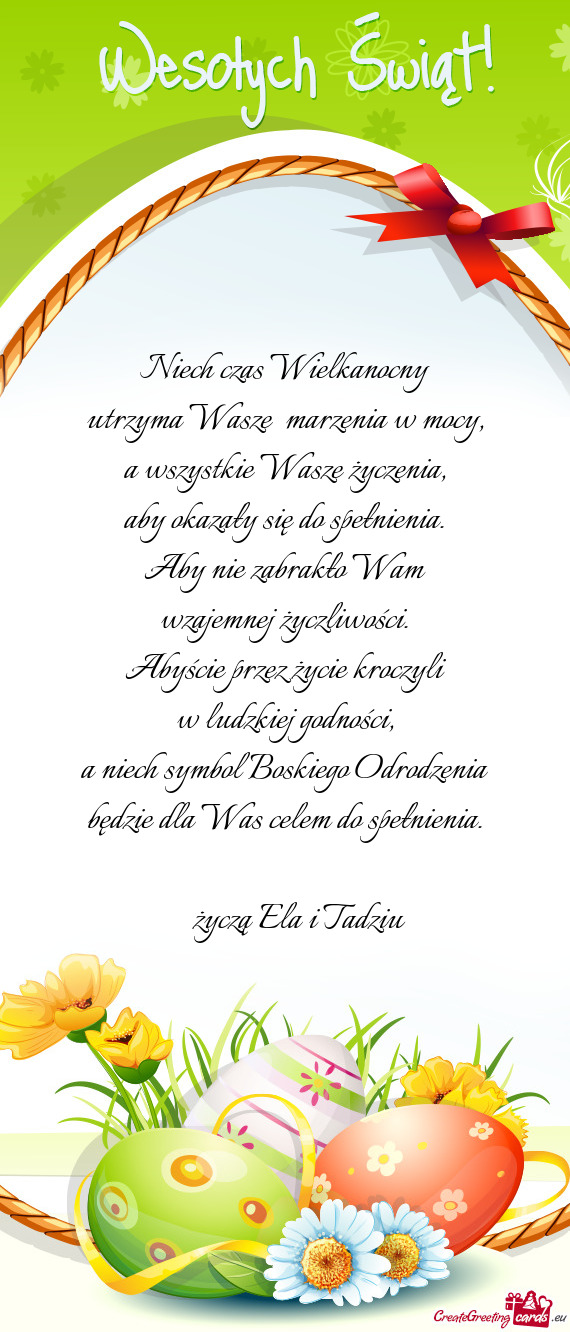 Wesołych Świąt!
Niech czas Wielkanocny
utrzyma Wasze marzenia w mocy,
a wszystkie Wasze życzenia,
aby okazały się do spełnienia.
Aby nie zabrakło Wam
wzajemnej życzliwości.
Abyście przez życie kroczyli
w ludzkiej godności,
a niech symbol Boskiego Odrodzenia
będzie dla Was celem do spełnienia.
życzą Ela i Tadziu
CreateGreeting cards .eu